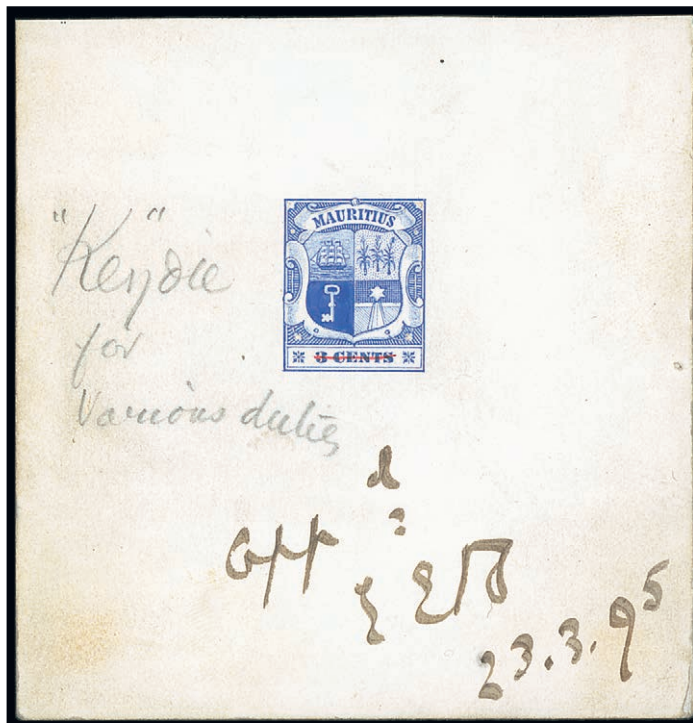 MAURITIUS
3 CENTS
"Key" die
for
Various duties
App
d
23.3.95